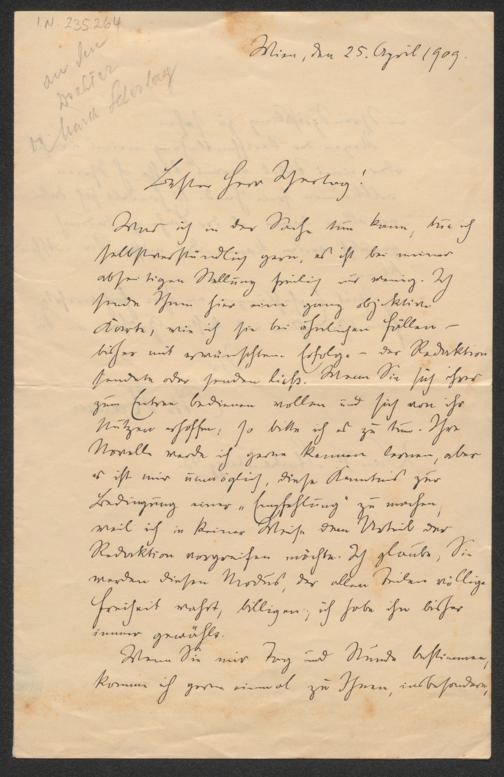 I.N. 235.264
an den
Dichter
Wien, den 25. April 1909.
Bester Herr
Was ich in der Sache tun kann, tue ich
selbstverständlich gern, es ist bei meiner
abseitigen Stellung freilich nur wenig. Ich
sende Ihnen hier eine ganz objektive
Karte, wie ich sie bei ähnlichen Fällen –
bisher mit erwünschtem Erfolge – der Redaktion
sendete oder senden ließ. Wenn Sie sich ihrer
zum Entree bedienen wollen und sich von ihr
Nutzen erhoffen, so bitte ich es zu tun. Ihre
Novelle werde ich gerne kennen lernen, aber
es ist mir unmöglich, diese Kenntnis zur
Bedingung einer „Empfehlung" zu machen,
weil ich in keiner Weise dem Urteil der
Redaktion vorgreifen möchte. Ich glaube, Sie
werden diesen Modus, der allen Teilen völlige
Freiheit wahrt, billigen; ich habe ihn bisher
immer gewählt.
Wenn Sie mir Tag und Stunde bestimmen,
komme ich gerne einmal zu Ihnen, insbesondere,